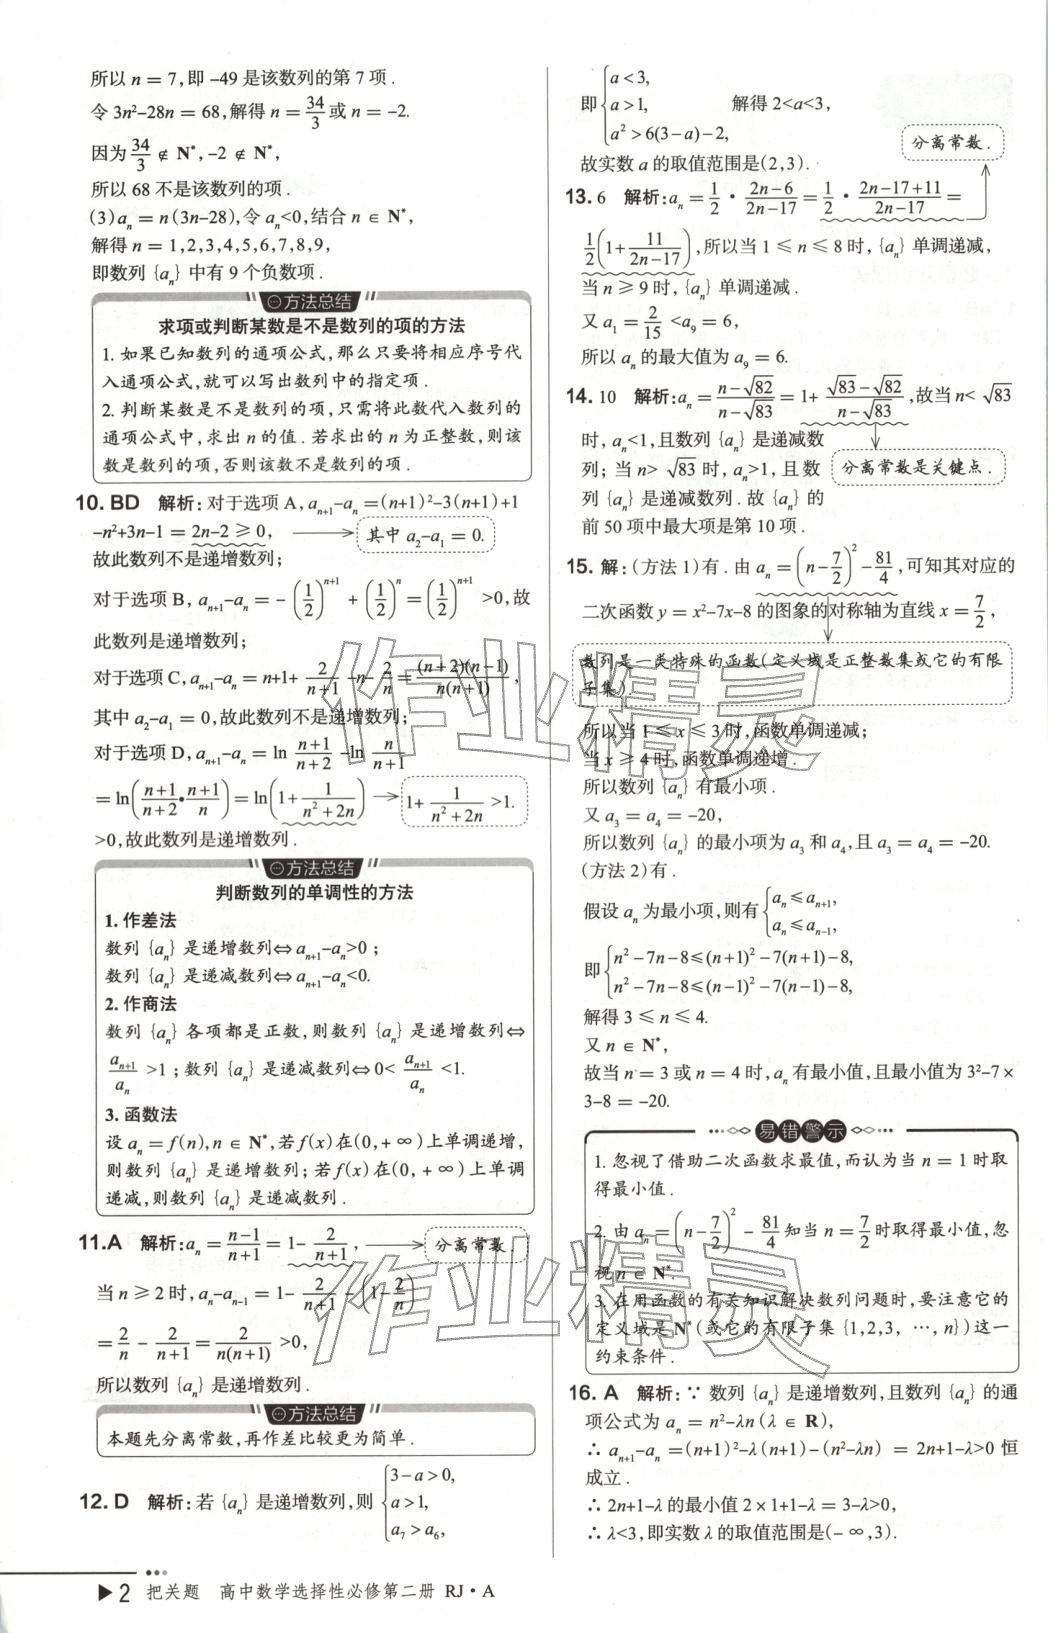 所以 n = 7,即 -49 是该数列的第 7 项.
令 3n²-28n = 68,解得 n = 34/3 或 n = -2.
因为 34/3 ∉ N*,-2 ∉ N*,
所以 68 不是该数列的项.
(3) aₙ = n(3n-28),令 aₙ<0,结合 n ∈ N*,
解得 n = 1,2,3,4,5,6,7,8,9,
即数列 {aₙ} 中有 9 个负数项.
方法总结
求项或判断某数是不是数列的项的方法
1. 如果已知数列的通项公式,那么只要将相应序号代
入通项公式,就可以写出数列中的指定项.
2. 判断某数是不是数列的项,只需将此数代入数列的
通项公式中,求出 n 的值.若求出的 n 为正整数,则该
数是数列的项,否则该数不是数列的项.
10. BD 解析:对于选项 A,aₙ₊₁-aₙ=(n+1)²-3(n+1)+1
-n²+3n-1 = 2n-2 ⩾ 0, → 其中 a₂-a₁ = 0.
故此数列不是递增数列;
对于选项 B,aₙ₊₁-aₙ = -(1/2)ⁿ⁺¹ + (1/2)ⁿ = (1/2)ⁿ⁺¹ >0,故
此数列是递增数列;
对于选项 C,aₙ₊₁-aₙ = n+1+ 2/(n+1) -n- 2/n = (n+2)(n-1)/(n(n+1)),
其中 a₂-a₁ = 0,故此数列不是递增数列;
对于选项 D,aₙ₊₁-aₙ = ln (n+1)/(n+2) -ln n/(n+1)
= ln((n+1)/(n+2)•(n+1)/n) = ln(1+ 1/(n²+2n)) → 1+ 1/(n²+2n) >1.
>0,故此数列是递增数列.
方法总结
判断数列的单调性的方法
1. 作差法
数列 {aₙ} 是递增数列⇔aₙ₊₁-aₙ>0;
数列 {aₙ} 是递减数列⇔aₙ₊₁-aₙ<0.
2. 作商法
数列 {aₙ} 各项都是正数,则数列 {aₙ} 是递增数列⇔
aₙ₊₁/aₙ >1;数列 {aₙ} 是递减数列⇔0< aₙ₊₁/aₙ <1.
3. 函数法
设 aₙ=f(n),n ∈ N*,若 f(x)在(0,+∞)上单调递增,
则数列 {aₙ} 是递增数列;若 f(x)在(0,+∞)上单调
递减,则数列 {aₙ} 是递减数列.
11. A 解析:aₙ = (n-1)/(n+1) = 1- 2/(n+1), → 分离常数.
当 n ⩾ 2 时,aₙ-aₙ₋₁ = 1- 2/(n+1) -(1- 2/n)
= 2/n - 2/(n+1) = 2/(n(n+1)) >0,
所以数列 {aₙ} 是递增数列.
方法总结
本题先分离常数,再作差比较更为简单.
12. D 解析:若 {aₙ} 是递增数列,则 { 3-a>0,
a>1,
a₇>a₆,
▶2 把关题 高中数学选择性必修第二册 RJ·A
即 { a<3,
a>1, 解得 2<a<3,
a²>6(3-a)-2,
分离常数.
故实数 a 的取值范围是(2,3).
13. 6 解析:aₙ = 1/2 · (2n-6)/(2n-17) = 1/2 · (2n-17+11)/(2n-17) =
1/2(1+ 11/(2n-17)),所以当 1 ⩽ n ⩽ 8 时,{aₙ} 单调递减,
当 n ⩾ 9 时,{aₙ} 单调递减.
又 a₁ = 2/15 <a₉ = 6,
所以 aₙ 的最大值为 a₉ = 6.
14. 10 解析:aₙ = (n-√82)/(n-√83) = 1+ (√83-√82)/(n-√83),故当 n< √83
时,aₙ<1,且数列 {aₙ} 是递减数
列;当 n> √83 时,aₙ>1,且数 分离常数是关键点.
列 {aₙ} 是递减数列.故 {aₙ} 的
前 50 项中最大项是第 10 项.
15. 解:(方法 1)有.由 aₙ = (n- 7/2)² - 81/4,可知其对应的
二次函数 y = x²-7x-8 的图象的对称轴为直线 x = 7/2,
数列是一类特殊的函数(定义域是正整数集或它的有限
子集).
所以当 1 ⩽ x ⩽ 3 时,函数单调递减;
当 x ⩾ 4 时,函数单调递增.
所以数列 {aₙ} 有最小项.
又 a₃ = a₄ = -20,
所以数列 {aₙ} 的最小项为 a₃ 和 a₄,且 a₃ = a₄ = -20.
(方法 2)有.
假设 aₙ 为最小项,则有 { aₙ ⩽ aₙ₊₁,
aₙ ⩽ aₙ₋₁,
即 { n²-7n-8⩽(n+1)²-7(n+1)-8,
n²-7n-8⩽(n-1)²-7(n-1)-8,
解得 3 ⩽ n ⩽ 4.
又 n ∈ N*,
故当 n = 3 或 n = 4 时,aₙ 有最小值,且最小值为 3²-7×
3-8 = -20.
易错警示
1. 忽视了借助二次函数求最值,而认为当 n = 1 时取
得最小值.
2. 由 aₙ = (n- 7/2)² - 81/4 知当 n = 7/2 时取得最小值,忽
视 n ∈ N*.
3. 在用函数的有关知识解决数列问题时,要注意它的
定义域是 N*(或它的有限子集{1,2,3,…,n})这一
约束条件.
16. A 解析:∵ 数列 {aₙ} 是递增数列,且数列 {aₙ} 的通
项公式为 aₙ = n²-λn(λ ∈ R),
∴ aₙ₊₁-aₙ=(n+1)²-λ(n+1)-(n²-λn) = 2n+1-λ>0 恒
成立.
∴ 2n+1-λ 的最小值 2×1+1-λ = 3-λ>0,
∴ λ<3,即实数 λ 的取值范围是(-∞,3).
作业精灵
作业精灵